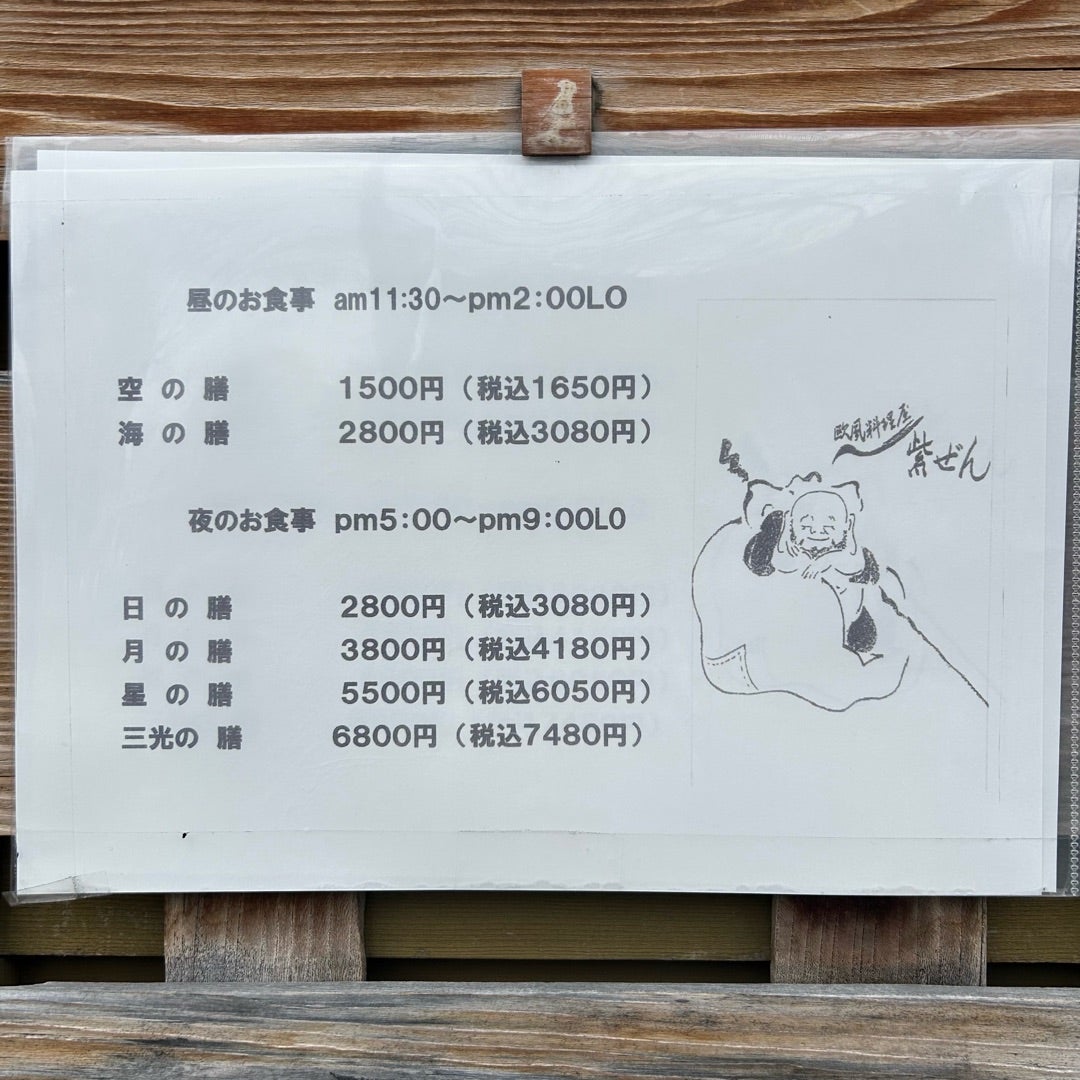 昼のお食事 am11:30～pm2:00LO
空の膳 1500円（税込1650円）
海の膳 2800円（税込3080円）
夜のお食事 pm5:00～pm9:00LO
日の膳 2800円（税込3080円）
月の膳 3800円（税込4180円）
星の膳 5500円（税込6050円）
三光の膳 6800円（税込7480円）
欧風料理屋
紫ぜん